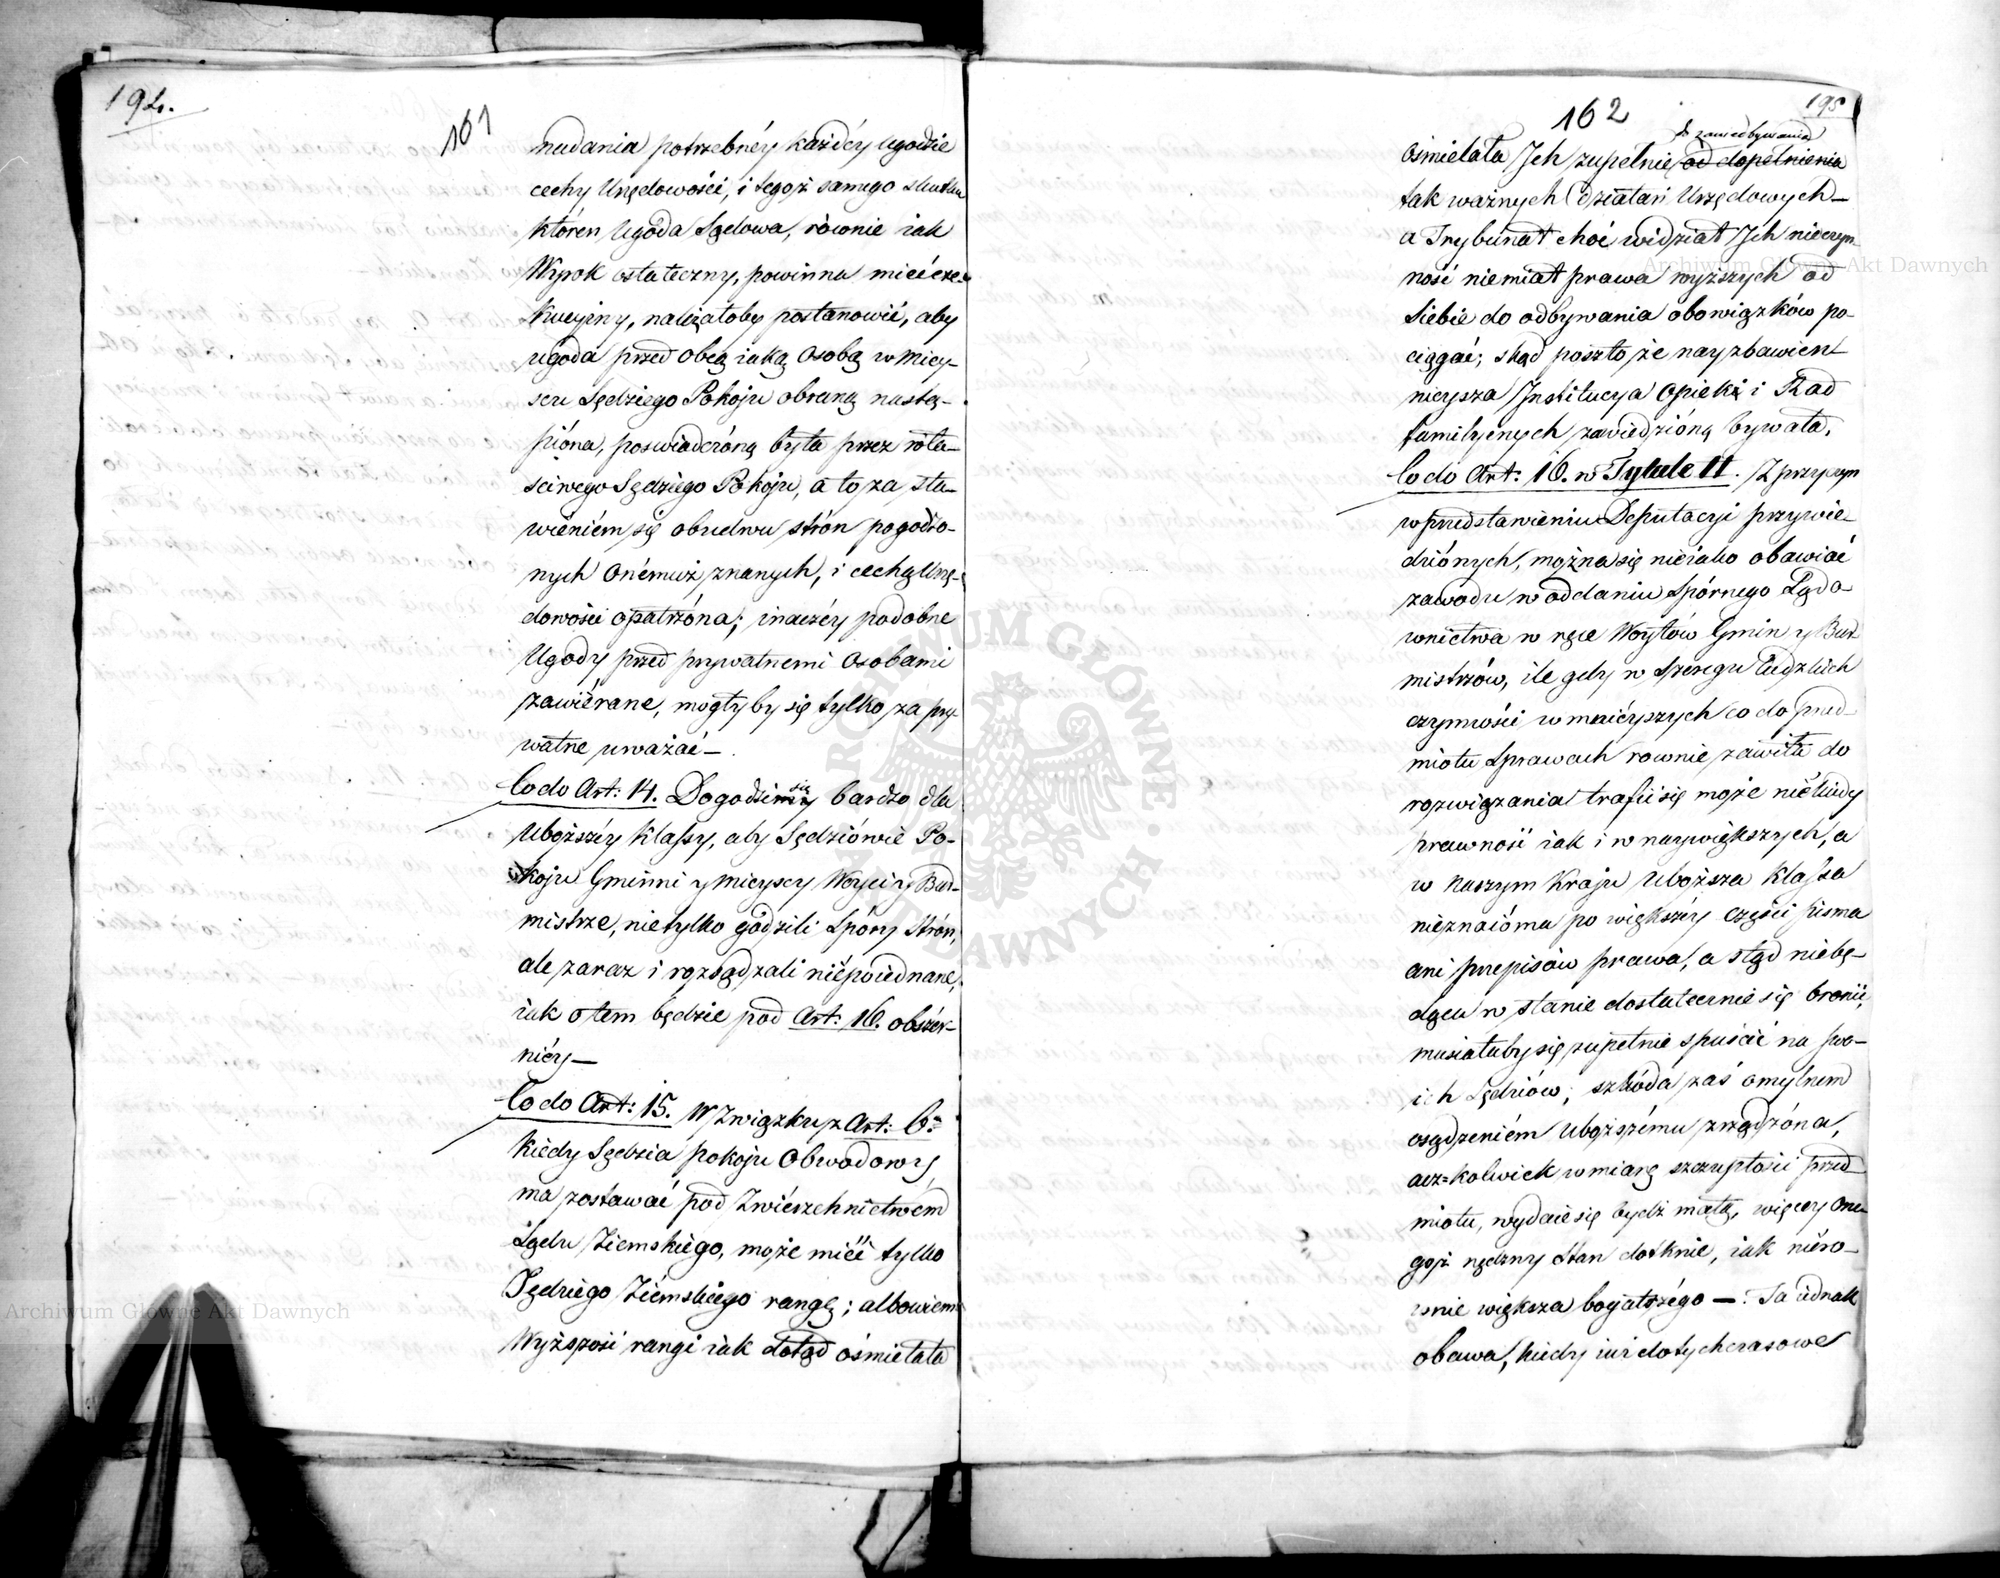 194.
161
nadania potrzebnéy każdéy Ugodzie
cechy Urzędowości, i tegoż samego skutku
któren Ugoda Sądowa, równie iak
Wyrok ostateczny, powinna mieć exe-
kucyiny, należałoby postanowić, aby
ugoda przed obcą iaką Osobą w miey-
scu Sędziego Pokoju obraną nastą-
pióna, poswiadczóną była przez wła-
sciwego Sędziego Pokoju, a to za sta-
wieniém się obudwu strón pogodzo-
nych onémuż znanych, i cechą Urzę-
dowości opatrzóna; inaczéy podobne
Ugody przed prywatnemi Osobami
zawiérane, mogłyby się tylko za pry-
watne uważać —
Co do Art: 14. Dogodzi się bardzo dla
Uboższéy Klassy, aby Sędziówie Po-
koju Gminni y mieyscy Woyci y Bur-
mistrze, nietylko godzili Spóry Strón,
ale zaraz i rozsądzali niépoiednane,
iak o tem będzie pod Art: 16. obszér-
niéy —
Co do Art: 15. W Związku z Art: 6:
Kiedy Sędzia pokoju Obwodowy
ma zostawać pod Zwiérzchnictwem
Sądu Ziemskiégo, może mieć tylko
Sędziego Ziémskiego rangę; albowiem
Wyższość rangi iak dotąd ośmielała
162
195
do zaniedbywania
ośmielała Jch zupełnie od dopełnienia
tak ważnych działań Urzędowych —
a Trybunał choć widział Jch nieczyn-
ność niemiał prawa wyższych od
Siebie do odbywania obowiązków po-
ciągać; skąd poszło że nayzbawien-
nieysza Jnstitucya Opieki i Rad
familyinych zawiedzióną bywała.
Co do Art: 16. w Tytule II. Z przyczyn
w przedstawieniu Deputacyi przywie-
dziónych, można się nieiako obawiać
zawodu w oddaniu Spórnego Sądo-
wnictwa w ręce Woytów Gmin y Bur-
mistrzów, ile gdy w Szeregu ludzkich
czynności w mnieyszych co do przed-
miotu Sprawach rownie zawiła do
rozwiązania trafić się może niekiedy
prawność iak i w naywiększych, a
w naszym Kraju Uboższa Klassa
nieznaióma po większéy części pisma
ani przepisów prawa, a stąd niebę-
dąca w stanie dostatecznie się bronić,
musiałaby się zupełnie spuścić na swo-
ich Sędziów; szkóda zaś omylnem
osądzeniém Uboższému zrządzóna,
acz=kolwiek w miarę szczupłości przed-
miotu, wydaie się bydź małą, więcéy one-
goż nędzny Stan dotknie, iak niéro-
wnie większa bogatszégo —. Ta iednak
obawa, kiedy iuż dotychczasowe
Archiwum Główne Akt Dawnych
Archiwum Główne Akt Dawnych
ARCHIWUM GŁÓWNE AKT DAWNYCH